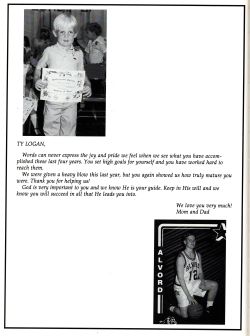 TY LOGAN,
Words can never express the joy and pride we feel when we see what you have accom-
plished these last four years. You set high goals for yourself and you have worked hard to
reach them.
We were given a heavy blow this last year, but you again showed us how truly mature you
were. Thank you for helping us!
God is very important to you and we know He is your guide. Keep in His will and we
know you will succeed in all that He leads you into.
We love you very much!
Mom and Dad
ALVORD
12